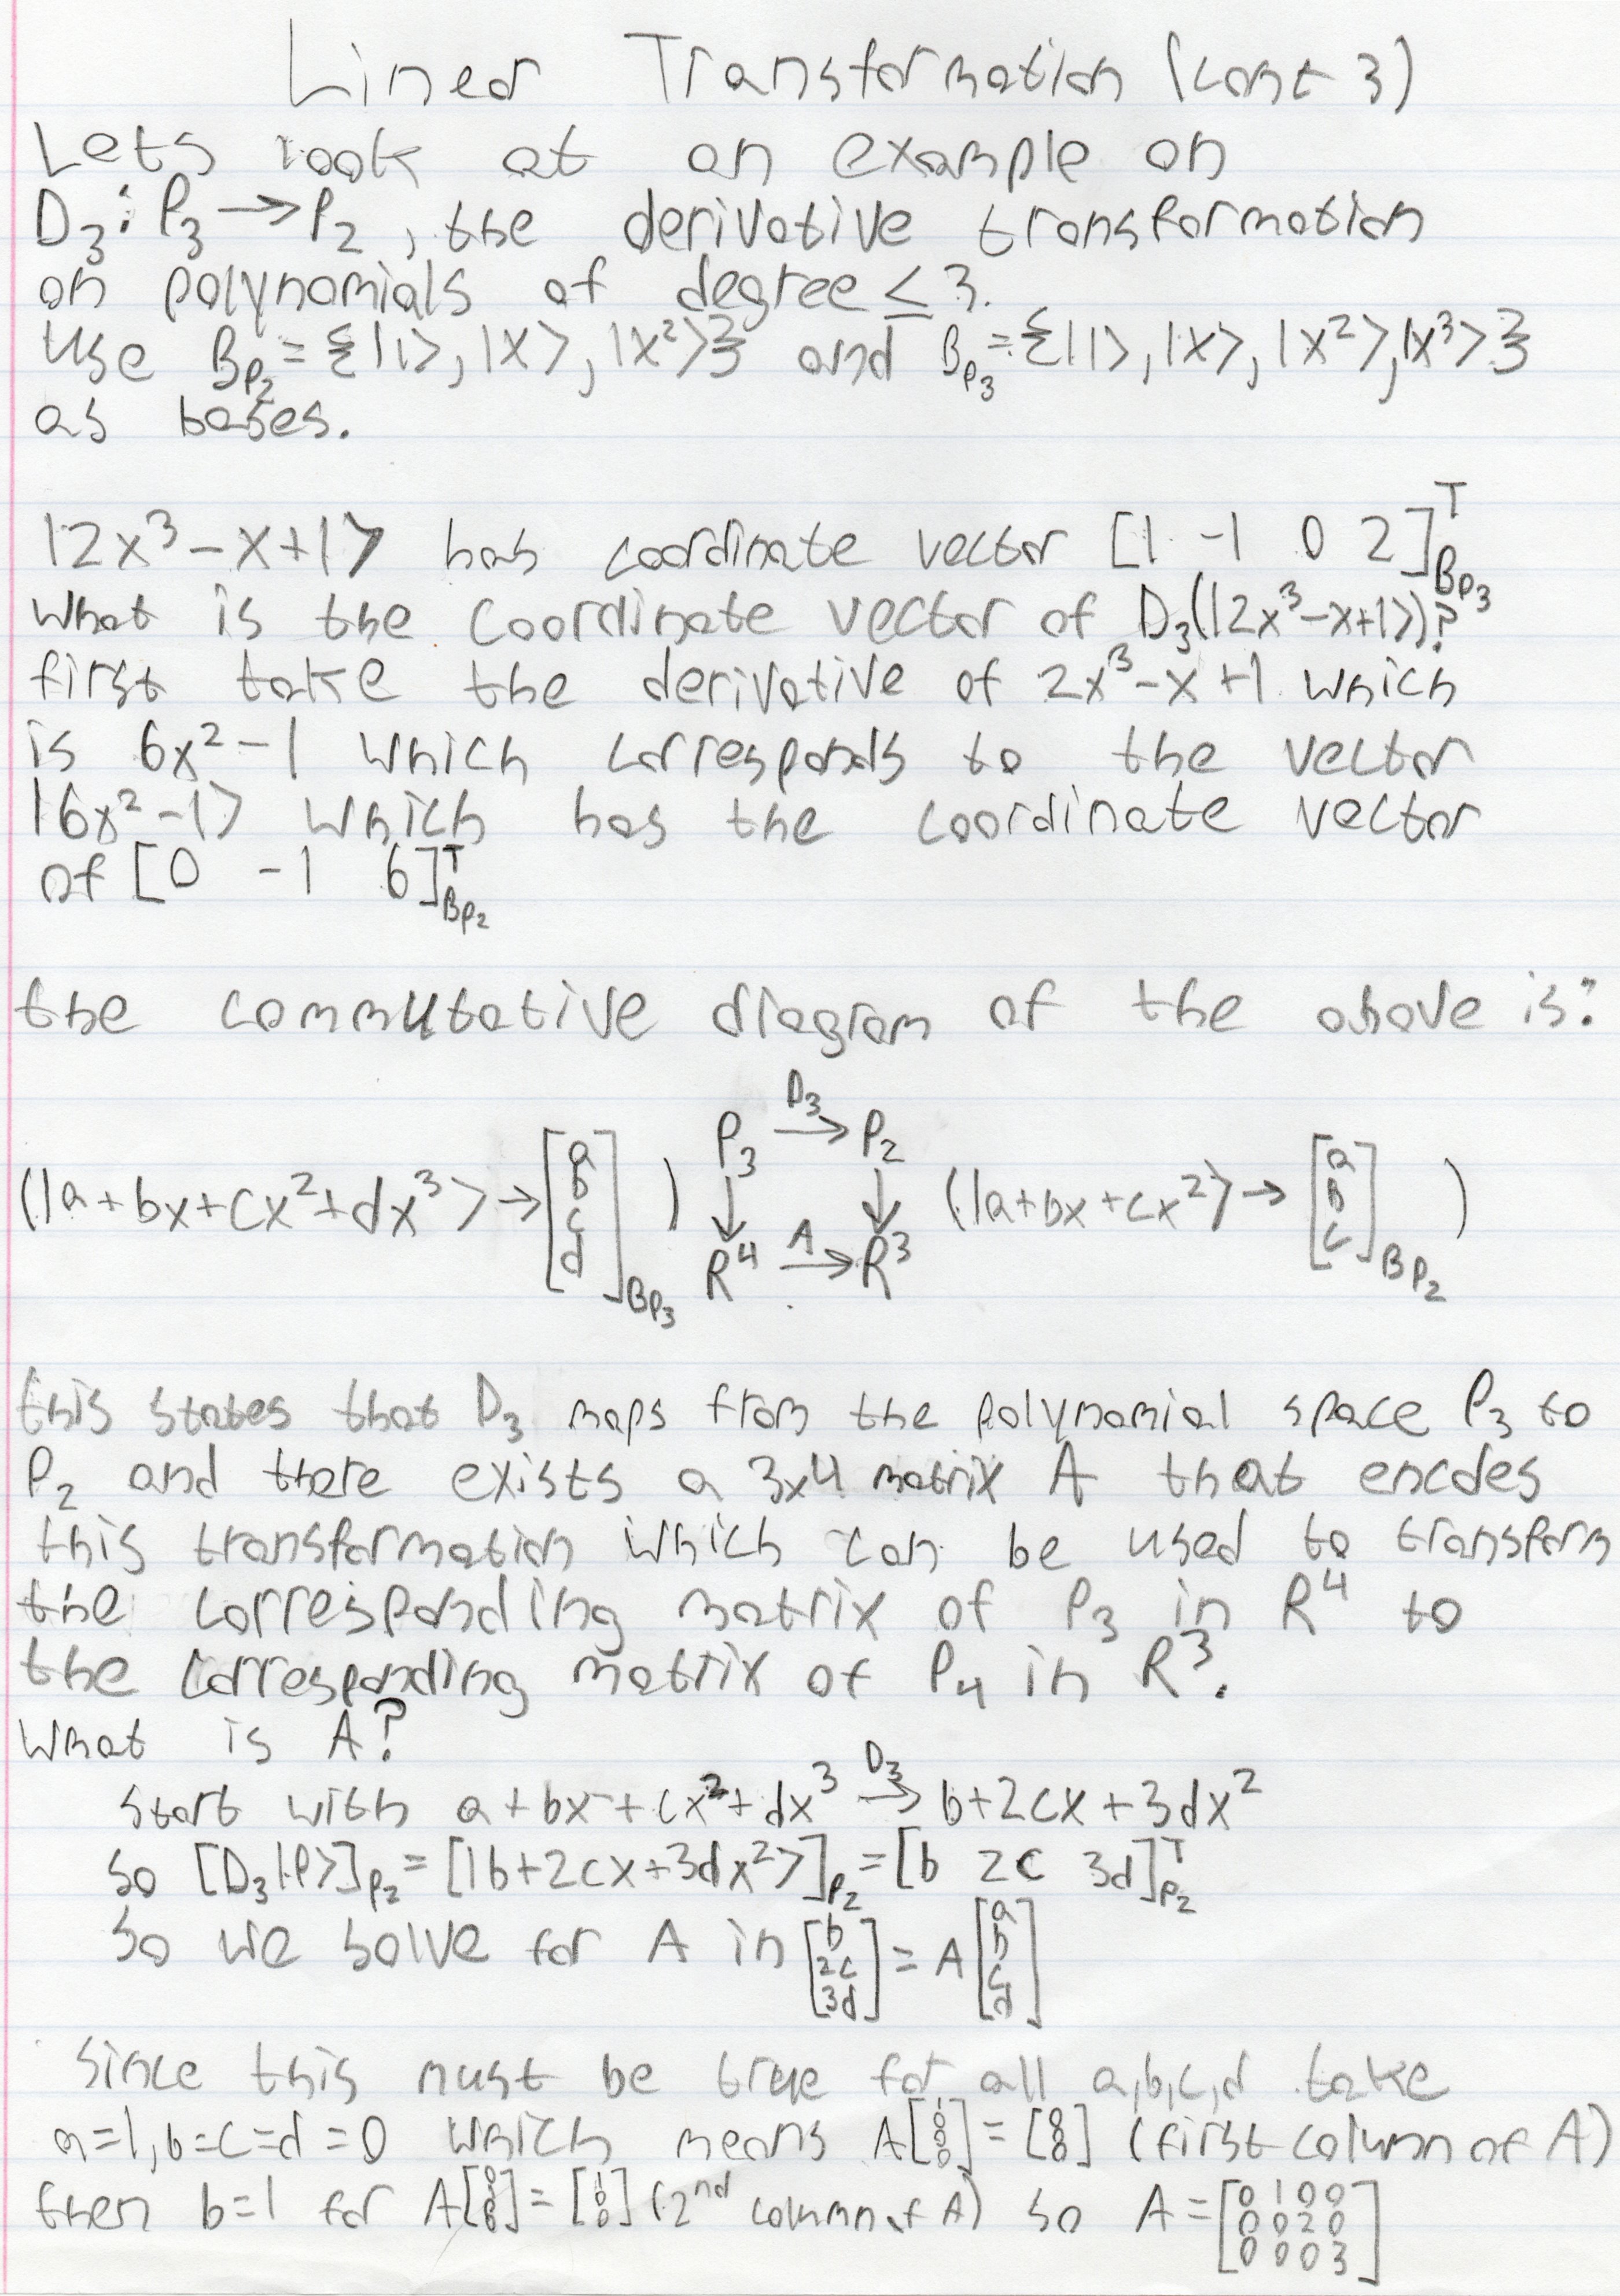 Linear Transformation (cont 3)
Lets look at an example on
D₃: P₃ → P₂, the derivative transformation
on polynomials of degree ≤ 3.
Use B_P₂ = {|1>, |x>, |x²>} and B_P₃ = {|1>, |x>, |x²>, |x³>}
as bases.
|2x³-x+1> has coordinate vector [1 -1 0 2]ᵀ_B_P₃
What is the coordinate vector of D₃(|2x³-x+1>)?
first take the derivative of 2x³-x+1 which
is 6x²-1 which corresponds to the vector
|6x²-1> which has the coordinate vector
of [0 -1 6]ᵀ_B_P₂
the commutative diagram of the above is:
(|a+bx+cx²+dx³> → [a b c d]_B_P₃) P₃ →(D₃) P₂ ↓ ↓ R⁴ →(A) R³ (|a+bx+cx²> → [a b c]_B_P₂)
this states that D₃ maps from the polynomial space P₃ to
P₂ and there exists a 3x4 matrix A that encdes
this transformation which can be used to transform
the corresponding matrix of P₃ in R⁴ to
the corresponding matrix of P₄ in R³.
What is A?
start with a+bx+cx²+dx³ →(D₃) b+2cx+3dx²
so [D₃|P>]_P₂ = [|b+2cx+3dx²>]_P₂ = [b 2c 3d]ᵀ_P₂
So we solve for A in [b 2c 3d] = A [a b c d]
Since this must be true for all a,b,c,d take
a=1, b=c=d=0 which means A[1 0 0 0] = [0 0 0] (first column of A)
then b=1 for A[0 1 0 0] = [1 0 0] (2nd column of A) so A = [0 1 0 0
0 0 2 0
0 0 0 3]